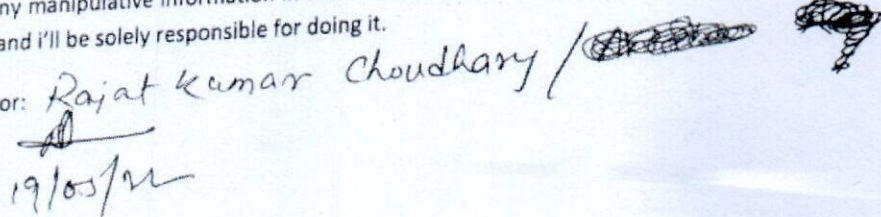 ny manipulative information
and i'll be solely responsible for doing it.
or: Rajat Kumar Choudhary /
19/05/22